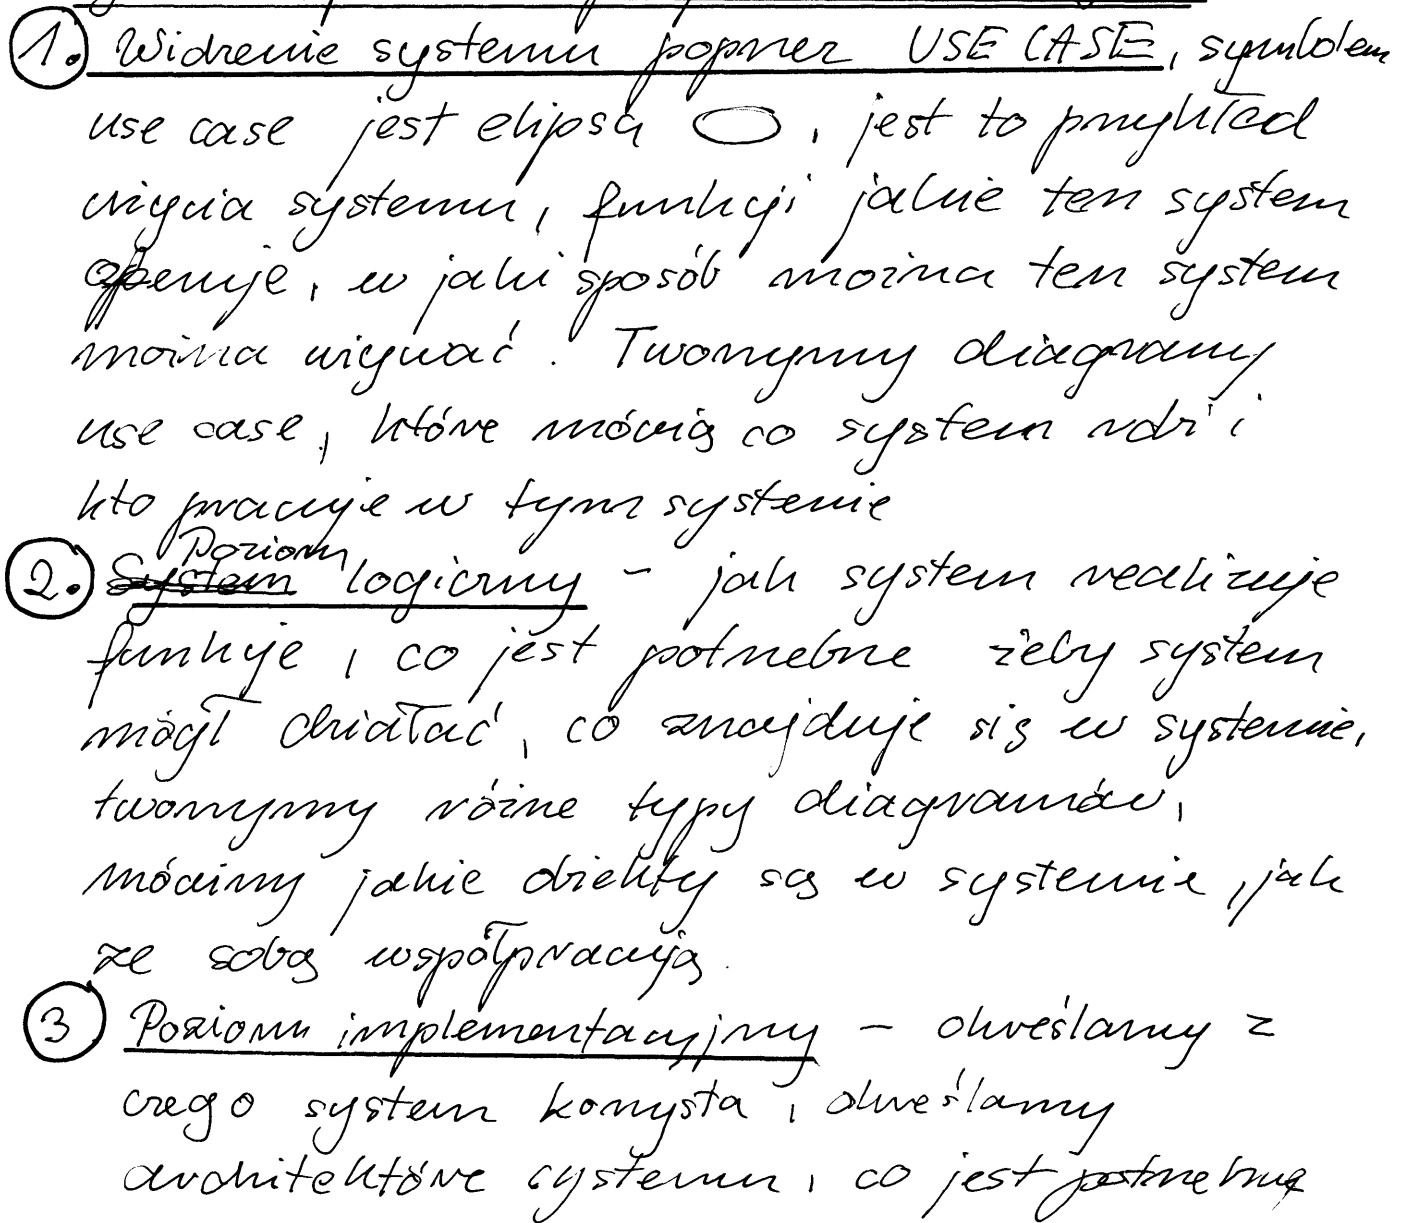 1. Widzenie systemu poprzez USE CASE, symbolem
use case jest elipsą, jest to przykład
użycia systemu, funkcji jakie ten system
oferuje, w jaki sposób można ten system
można używać. Tworzymy diagramy
use case, które mówią co system robi i
kto pracuje w tym systemie
Poziom
2. System logiczny – jak system realizuje
funkcje, co jest potrzebne żeby system
mógł działać, co znajduje się w systemie,
tworzymy różne typy diagramów,
mówimy jakie obiekty są w systemie, jak
ze sobą współpracują.
3 Poziom implementacyjny – określamy z
czego system korzysta, określamy
architektóre systemu, co jest potrzebne